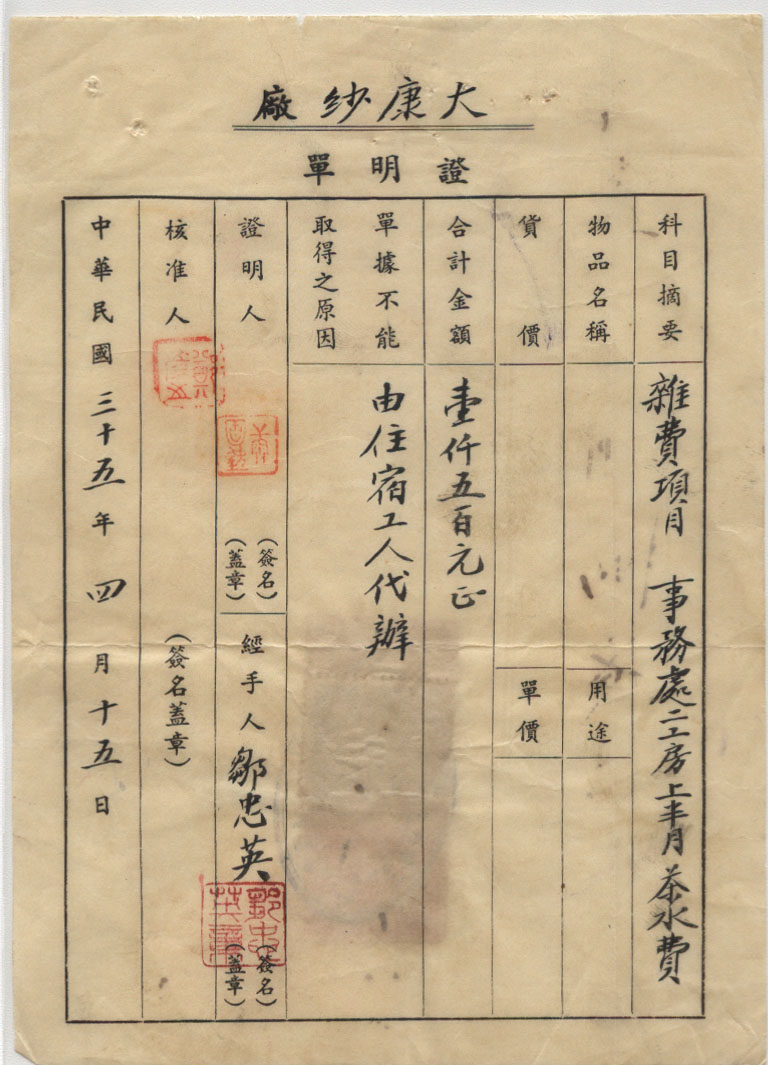 大康紗廠
證明單
科目摘要
雜費項目 事務處二工房上半月茶水費
物品名稱
用途
貨價
單價
合計金額
壹仟五百元正
單據不能
取得之原因
由住宿工人代辦
證明人
(簽名)
(蓋章)
經手人
鄒忠英
(簽名)
(蓋章)
鄒忠
英章
核准人
(簽名蓋章)
中華民國三十五年四月十五日